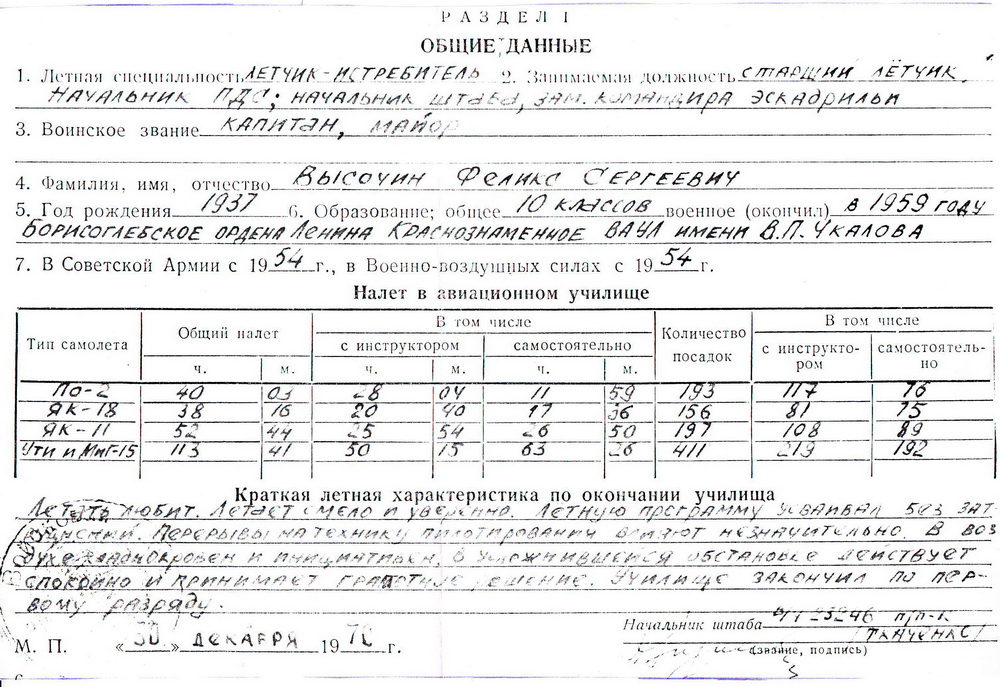 РАЗДЕЛ I
ОБЩИЕ ДАННЫЕ
1. Летная специальность ЛЕТЧИК-ИСТРЕБИТЕЛЬ 2. Занимаемая должность СТАРШИЙ ЛЁТЧИК,
НАЧАЛЬНИК ПДС; НАЧАЛЬНИК ШТАБА, ЗАМ. КОМАНДИРА ЭСКАДРИЛЬИ
3. Воинское звание КАПИТАН, МАЙОР
4. Фамилия, имя, отчество ВЫСОЧИН ФЕЛИКС СЕРГЕЕВИЧ
5. Год рождения 1937 6. Образование; общее 10 КЛАССОВ военное (окончил) В 1959 ГОДУ
БОРИСОГЛЕБСКОЕ ОРДЕНА ЛЕНИНА КРАСНОЗНАМЕННОЕ ВАУЛ ИМЕНИ В.П. ЧКАЛОВА
7. В Советской Армии с 1954 г., в Военно-воздушных силах с 1954 г.
Налет в авиационном училище
Тип самолета Общий налет В том числе Количество посадок В том числе
с инструктором самостоятельно с инструкто-ром самостоятель-но
ч. м. ч. м. ч. м.
ПО-2 40 03 28 04 11 59 193 117 76
ЯК-18 38 16 20 40 17 36 156 81 75
ЯК-11 52 44 25 54 26 50 197 108 89
УТИ и МиГ-15 113 41 50 15 63 26 411 219 192
Краткая летная характеристика по окончании училища
ЛЕТАТЬ ЛЮБИТ. ЛЕТАЕТ СМЕЛО И УВЕРЕННО. ЛЕТНУЮ ПРОГРАММУ УСВАИВАЛ БЕЗ ЗАТ-
РУДНЕНИЙ. ПЕРЕРЫВЫ НА ТЕХНИКУ ПИЛОТИРОВАНИЯ ВЛИЯЮТ НЕЗНАЧИТЕЛЬНО. В ВОЗ
ДУХЕ ХЛАДНОКРОВЕН И ИНИЦИАТИВЕН, В УСЛОЖНИВШЕЙСЯ ОБСТАНОВКЕ ДЕЙСТВУЕТ
СПОКОЙНО И ПРИНИМАЕТ ГРАМОТНОЕ РЕШЕНИЕ. УЧИЛИЩЕ ЗАКОНЧИЛ ПО ПЕР-
ВОМУ РАЗРЯДУ.
Начальник штаба В/Ч 23246 П/П-К
(ТКАЧЕНКО)
М. П. «30» ДЕКАБРЯ 1970 г.
(звание, подпись)